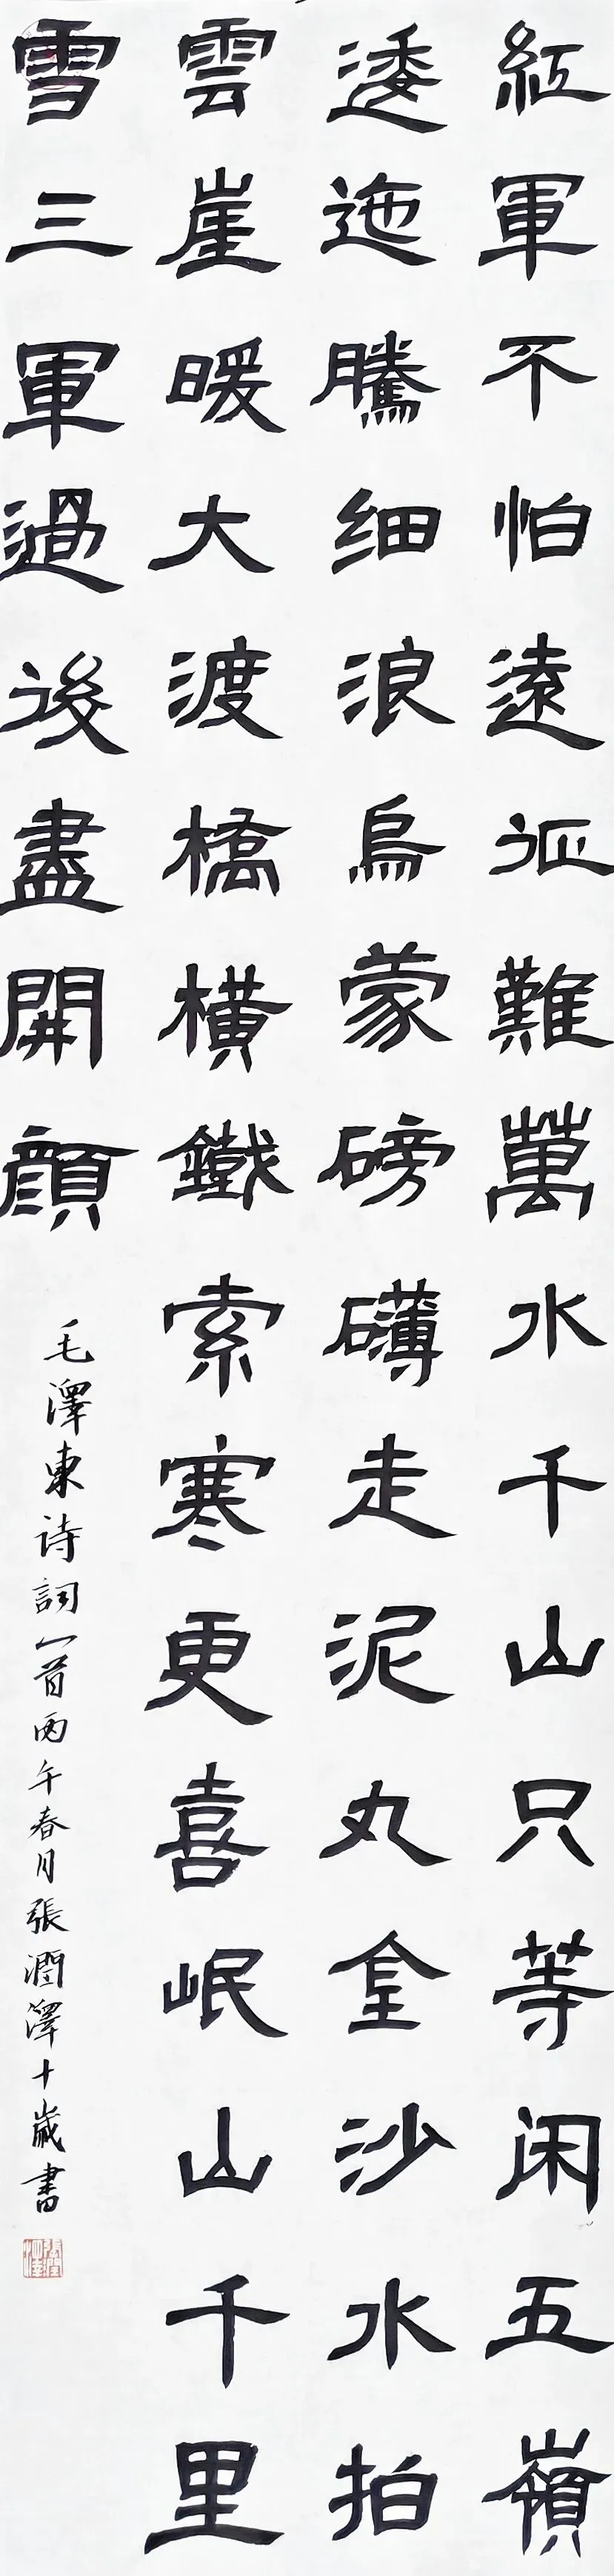 紅軍不怕遠征難萬水千山只等闲五嶺
逶迤騰细浪烏蒙磅礴走泥丸金沙水拍
雲崖暖大渡橋橫鐵索寒更喜岷山千里
雪三軍過後盡開顔
毛澤東诗詞一首丙午春月張潤澤十歲書